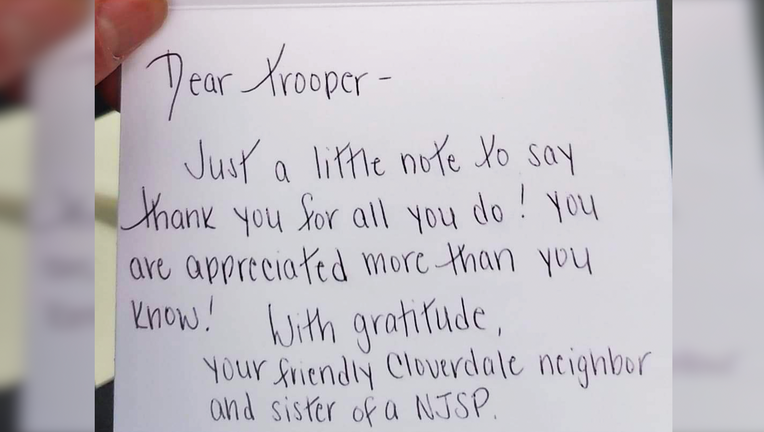 Dear trooper -
Just a little note to say
thank you for all you do! You
are appreciated more than you
know! With gratitude,
your friendly Cloverdale neighbor
and sister of a NJSP.